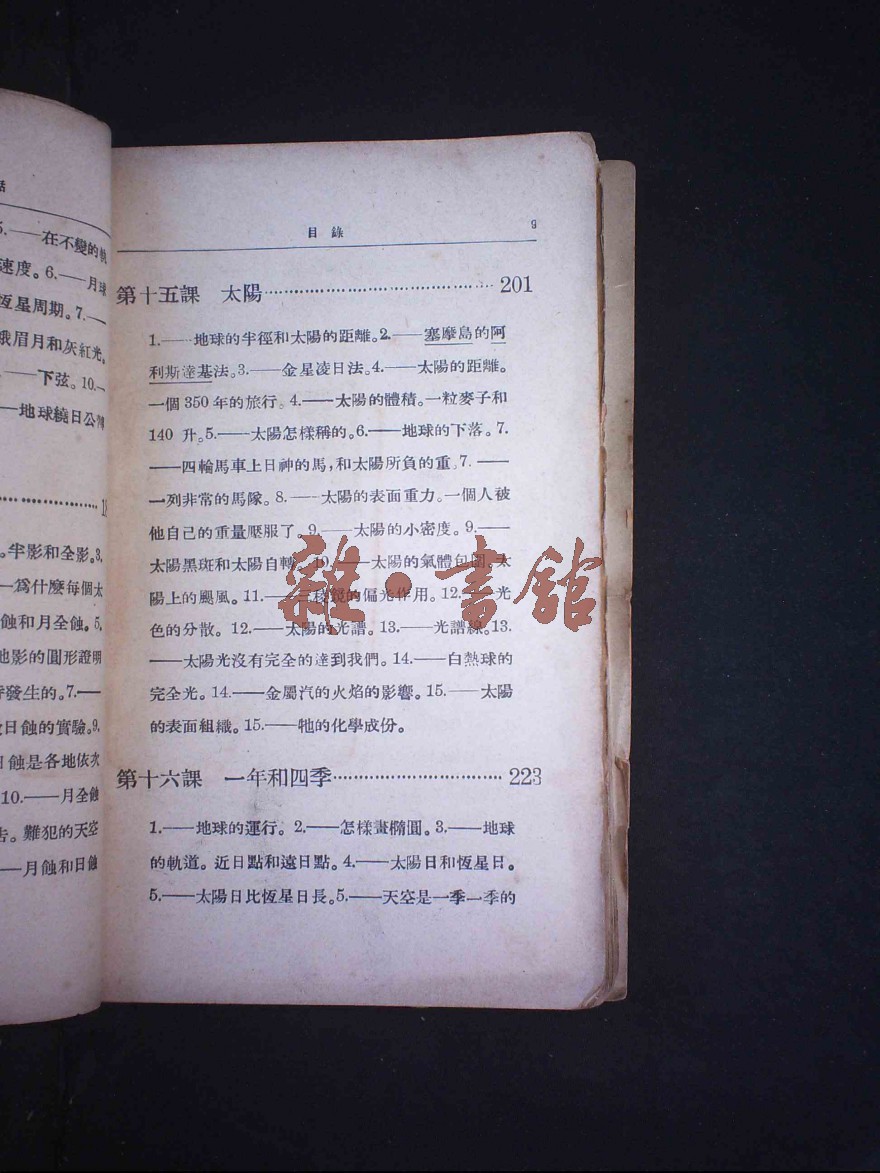 話
5.——在不變的軌
速度。6.——月球
恆星周期。7.——
蛾眉月和灰紅光。
——下弦。10.—
——地球繞日公轉
18
。半影和全影。3.
—爲什麼每個太
蝕和月全蝕。5.
地影的圓形證明
發生的。7.——
日蝕的實驗。9.
日蝕是各地依次
10.——月全蝕
告。難犯的天空
——月蝕和日蝕
目錄 9
第十五課 太陽 201
1.——地球的半徑和太陽的距離。2.——塞摩島的阿
利斯達基法。3.——金星凌日法。4.——太陽的距離。
一個350年的旅行。4.——太陽的體積。一粒麥子和
140 升。5.——太陽怎樣稱的。6.——地球的下落。7.
——四輪馬車上日神的馬，和太陽所負的重。7.——
一列非常的馬隊。8.——太陽的表面重力。一個人被
他自己的重量壓服了。9.——太陽的小密度。9.——
太陽黑斑和太陽自轉。10.——太陽的氣體包圍。太
陽上的颶風。11.——三稜鏡的偏光作用。12.——光
色的分散。12.——太陽的光譜。13.——光譜線。13.
——太陽光沒有完全的達到我們。14.——白熱球的
完全光。14.——金屬汽的火焰的影響。15.——太陽
的表面組織。15.——牠的化學成份。
第十六課 一年和四季 223
1.——地球的運行。2.——怎樣畫橢圓。3.——地球
的軌道。近日點和遠日點。4.——太陽日和恆星日。
5.——太陽日比恆星日長。5.——天空是一季一季的
雜·書館